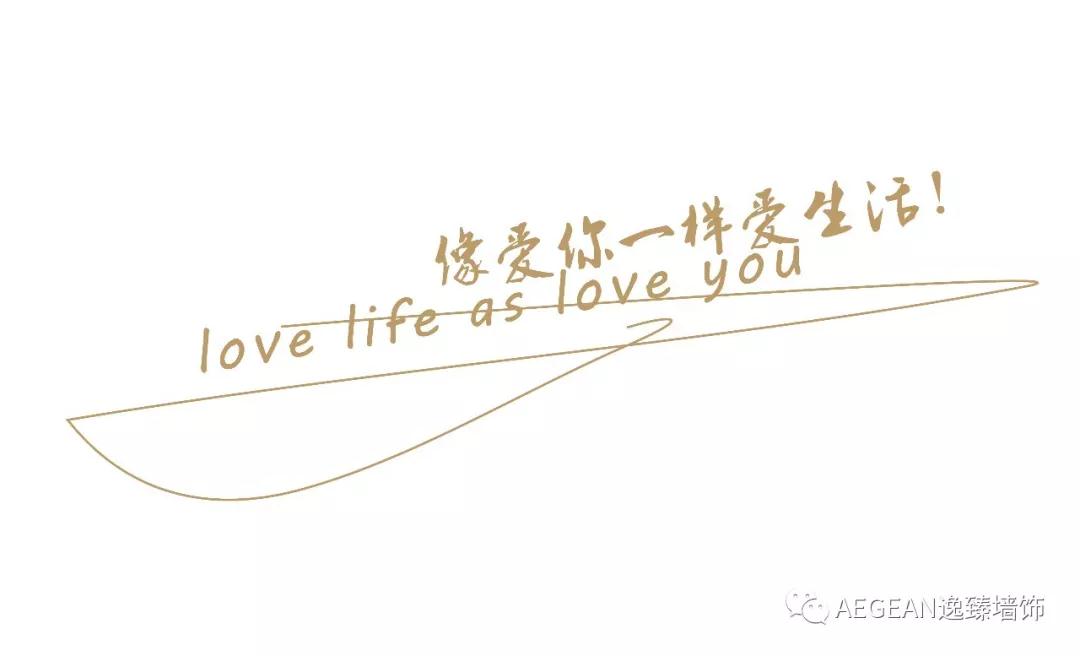 像爱你一样爱生活!
love life as love you
AEGEAN逸臻墙饰